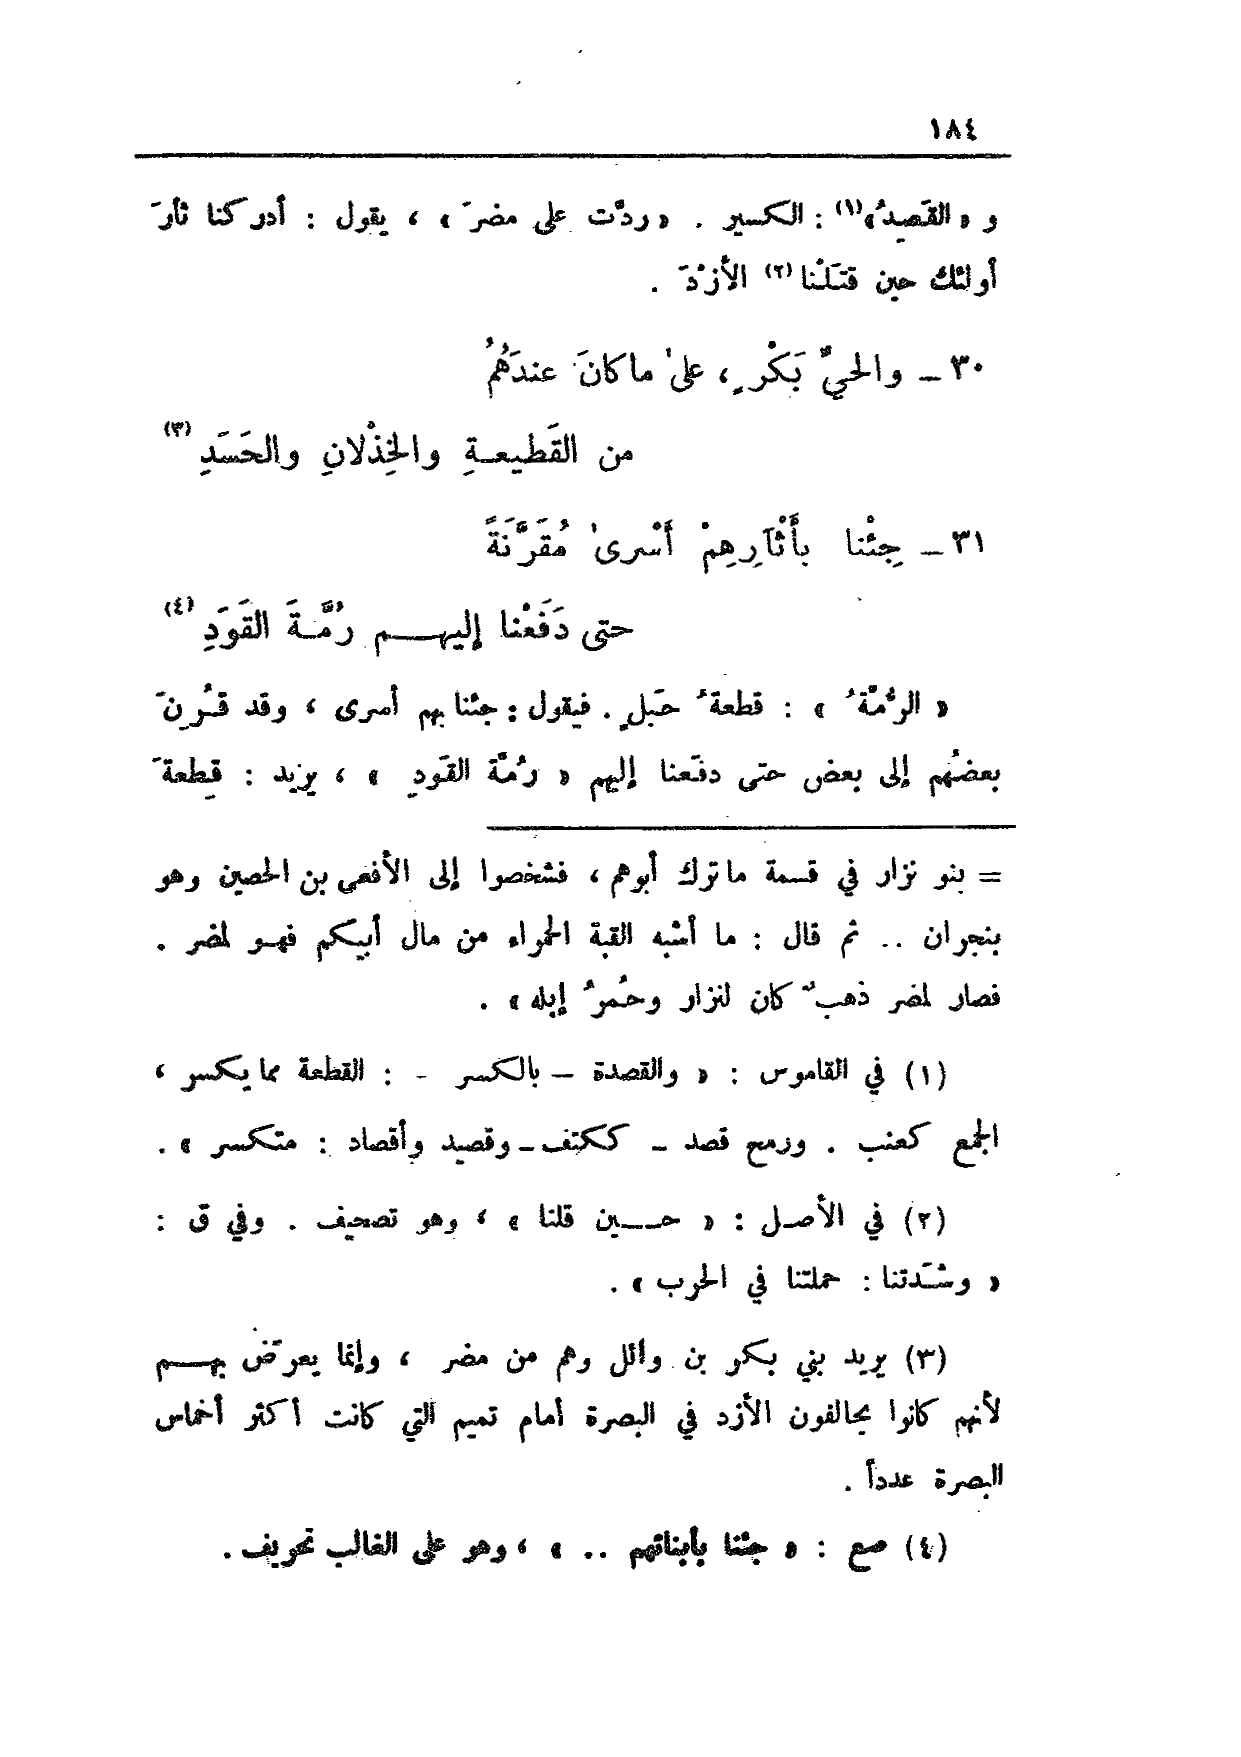 ١٨٤
و « القَصِيدُ»(١) : الكسير . « ردَّت على مضرَ » ، يقول : أدركنا ثأرَ
أولئك حين قتَلْنا(٢) الأزْدَ .
٣٠ ــ والحيِّ بَكْرٍ ، علىٰ ما كانَ عندَهُمُ
من القَطيعةِ والخِذْلانِ والحَسَدِ (٣)
٣١ ــ جِئْنا بأَثْآرِهِمْ أَسْرىٰ مُقَرَّنَةً
حتى دَفَعْنا إليهم رُمَّةَ القَوَدِ (٤)
« الرُّمَّةُ » : قطعةُ حَبلٍ . فيقول : جئنا بهم أسرى ، وقد قُرِنَ
بعضُهم إلى بعض حتى دفَعنا إليهم « رُمَّة القَودِ » ، يريد : قِطعةَ
= بنو نزار في قسمة ما ترك أبوهم ، فشخصوا إلى الأفعى بن الحصين وهو
بنجران .. ثم قال : ما أشبه القبة الحمراء من مال أبيكم فهو لمضر .
فصار لمضر ذهبٌ كان لنزار وحُمرُ إبله » .
(١) في القاموس : « والقصدة – بالكسر - : القطعة مما يكسر ،
الجمع كعنب . ورمح قصد – ككتف – وقصيد وأقصاد : متكسر » .
(٢) في الأصل : « حين قلنا » ، وهو تصحيف . وفي ق :
« وشَدتنا : حملتنا في الحرب » .
(٣) يريد بني بكر بن وائل وهم من مضر ، وإنما يعرّض بهم
لأنهم كانوا يحالفون الأزد في البصرة أمام تميم التي كانت أكثر أخماس
البصرة عدداً .
(٤) صع : « جئنا بأبنائهم .. » ، وهو على الغالب تحريف .